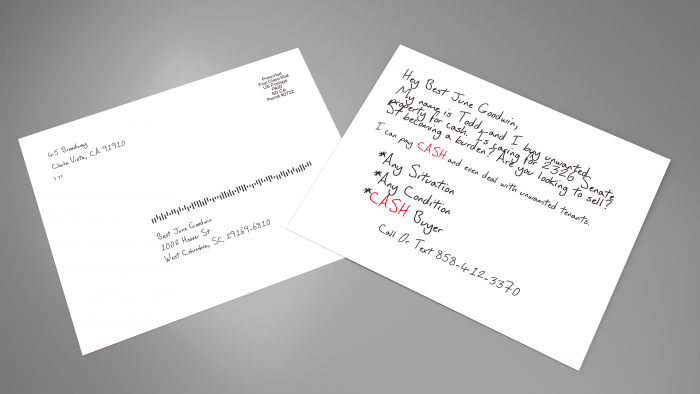 Presorted
First Class Mail
US Postage
PAID
45 Broadway
Chula Vista, CA 91910
Best June Goodwin
1002 Hoover St
West Columbia, SC 29169-6810
Hey Best June Goodwin,
My name is Todd and I buy unwanted
property for cash. Is caring for 2326 Senate
St becoming a burden? Are you looking to sell?
I can pay CASH and even deal with unwanted tenants.
*Any Situation
*Any Condition
*CASH Buyer
Call Or Text 858-412-3370